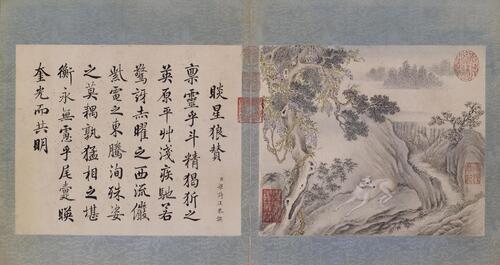 睒星狼贊
臣梁詩正恭撰
稟靈乎斗精之
英原平艸淺疾馳若
驚訝曜之西流儼
紫電之東騰洵殊姿
之莫耦孰猛相之堪
衡永無乎尾睒
奎光而共明